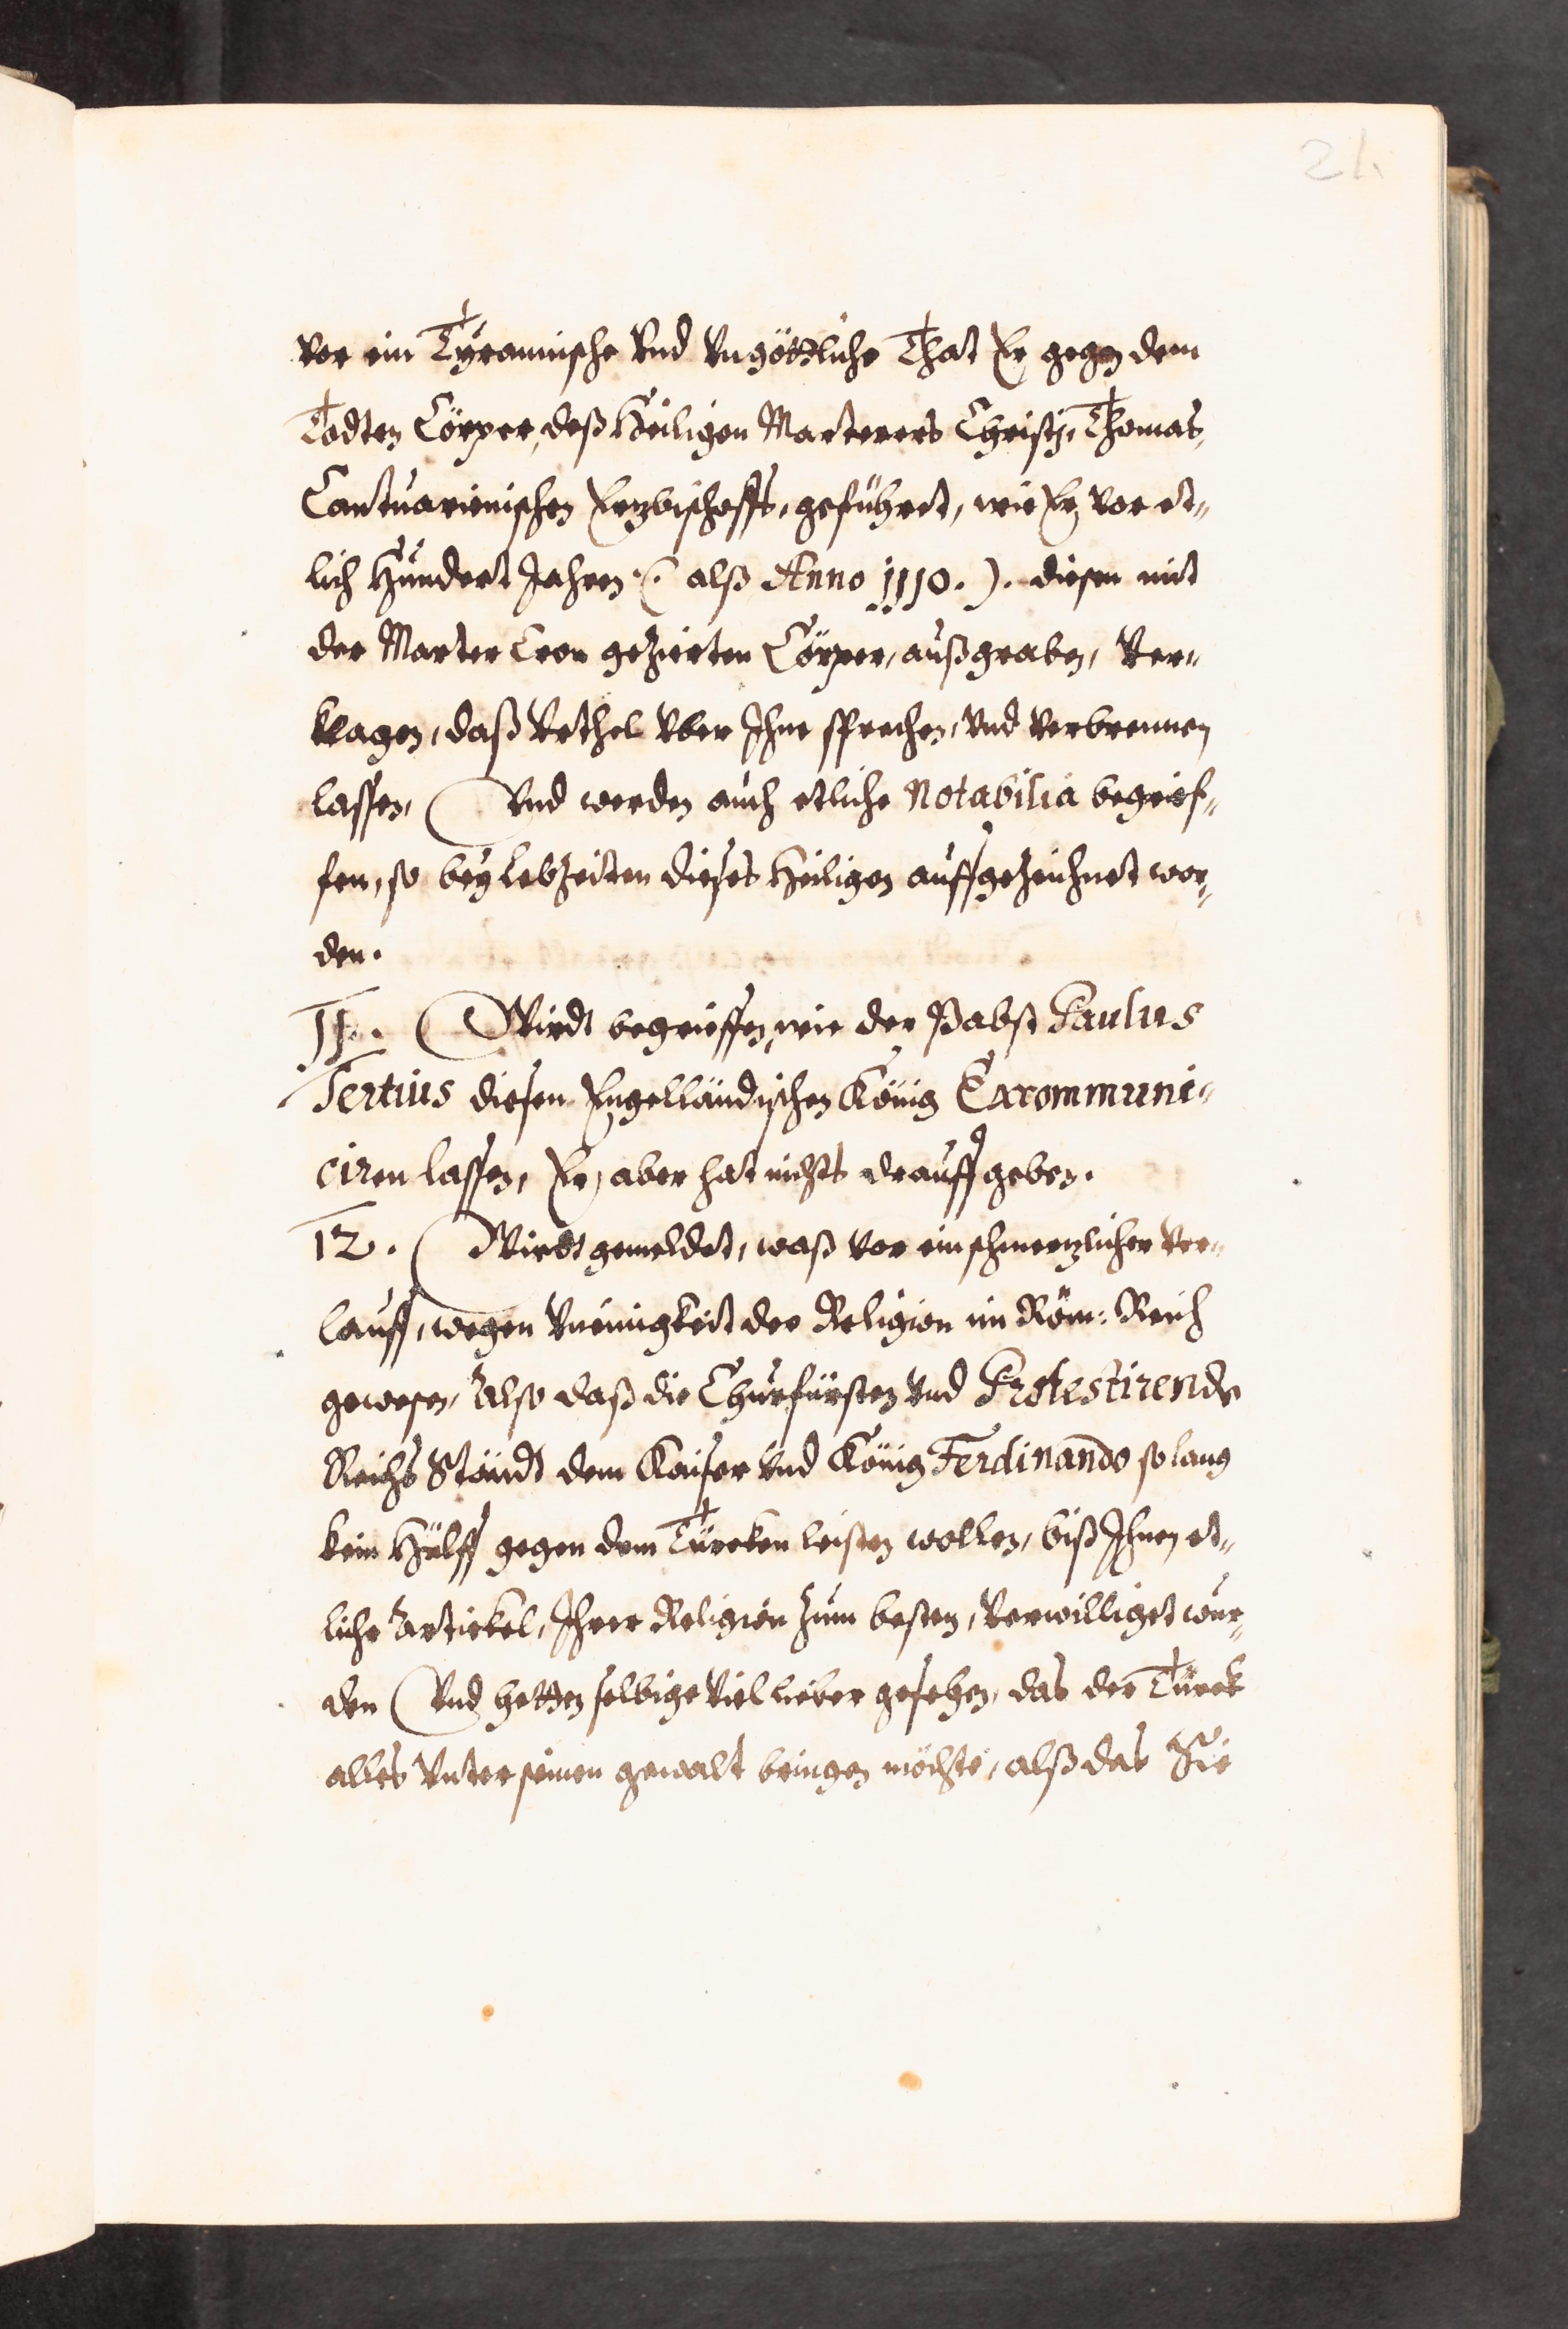 21.
vor ein Tyrannische vnd vngöttliche That Er gegen dem
Todten Cörper, deß Heiligen Marterers Christj, Thomas,
Cantuarienischen Erzbischoffs, geführet, wie Er vor et„
lich Hundert Jahren .(. alß Anno 1110. ). diesen mit
der Marter Cron gezierten Cörper, außgraben, Ver„
klagen, daß Vrthel Vber Ihne sprechen, vnd verbrennen
lassen, Vnd werden auch etliche Notabilia begrief„
fen, so bey lebzeiten dieses Heiligen auffgezeichnet wor„
den.
11. Wirdt begrieffen, wie der Pabst Paulus
Tertius diesen Engelländischen König Excommuni„
ciren lassen, Er aber hat nichts drauff geben.
12. Wirdt gemeldet, waß vor ein schmerzlicher Ver„
lauff, wegen Vneinigkeit der Religion im Röm: Reich
gewesen, Also daß die Churfürsten vnd Protestirende
Reichs Ständt dem Kaiser vnd König Ferdinando so lang
kein Hülff gegen dem Türcken leisten wollen, biß Ihnen et„
liche Artickel, Ihrer Religion zum besten, Verwilliget wur„
den Vnd hetten selbige viel lieber gesehen, das der Türck
alles Vnter seinen gewalt bringen möchte, alß das Sie